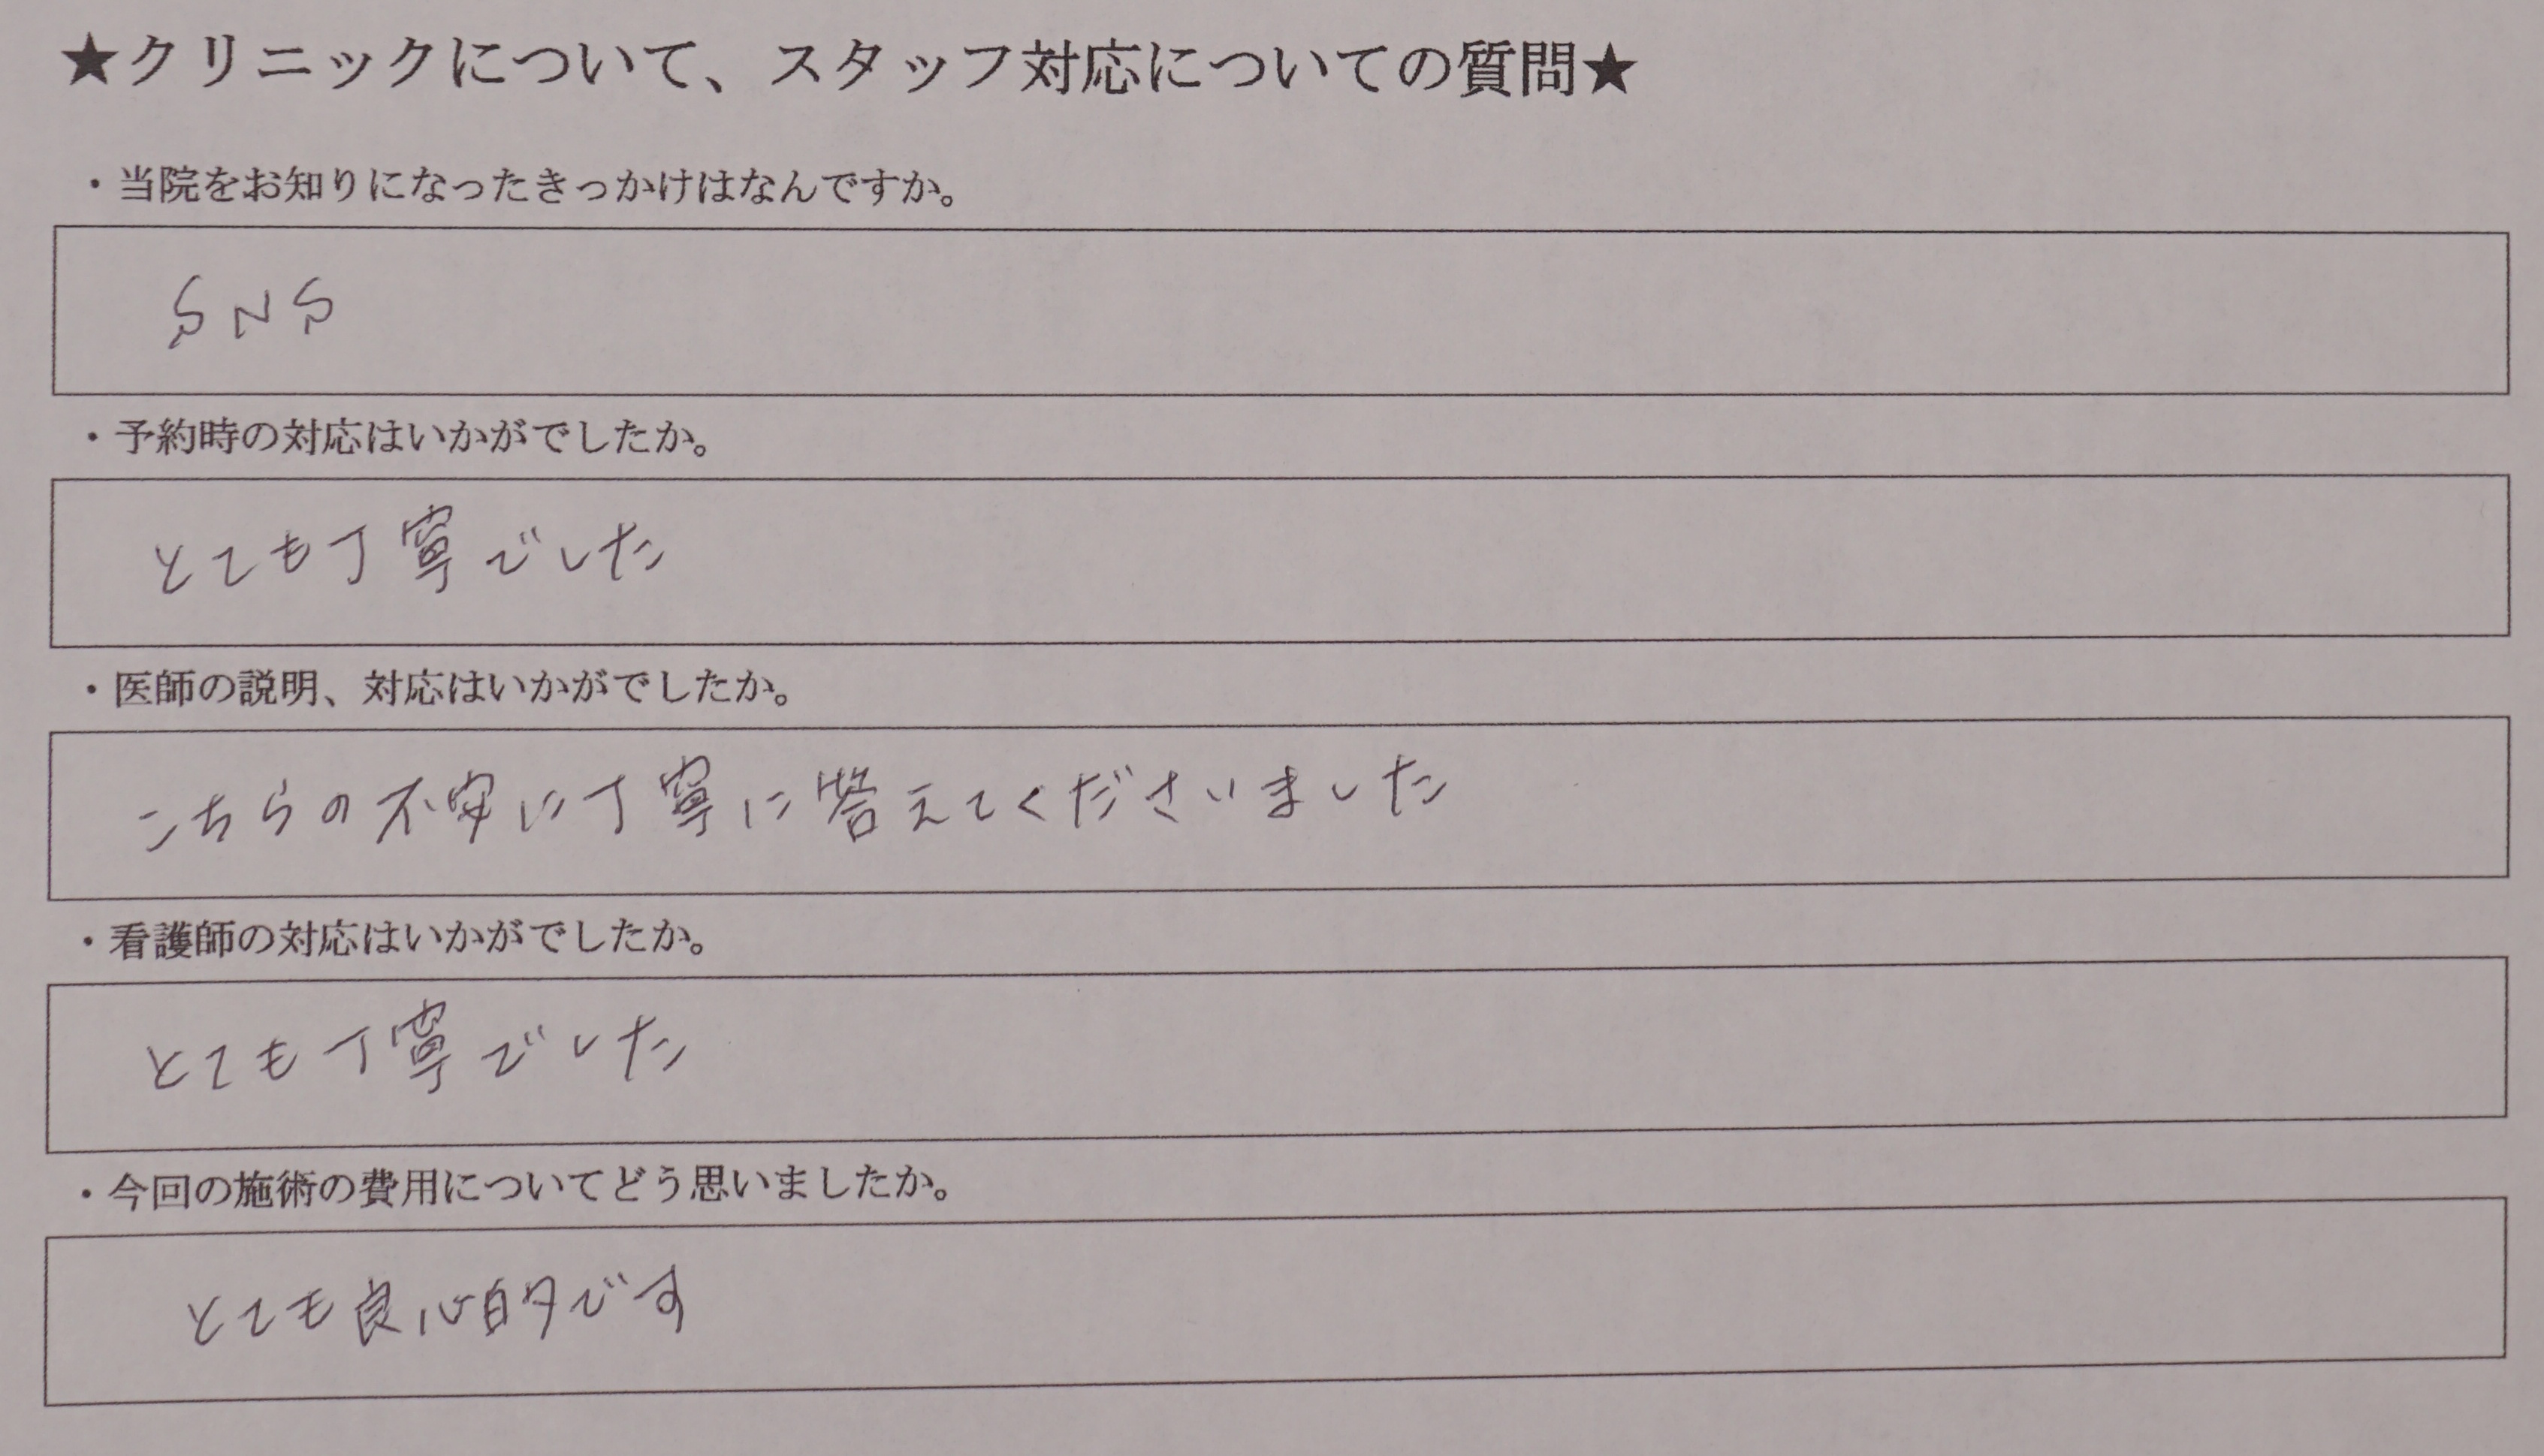 ★クリニックについて、スタッフ対応についての質問★
・当院をお知りになったきっかけはなんですか。
SNS
・予約時の対応はいかがでしたか。
とても丁寧でした
・医師の説明、対応はいかがでしたか。
こちらの不安に丁寧に答えてくださいました
・看護師の対応はいかがでしたか。
とても丁寧でした
・今回の施術の費用についてどう思いましたか。
とても良心的です